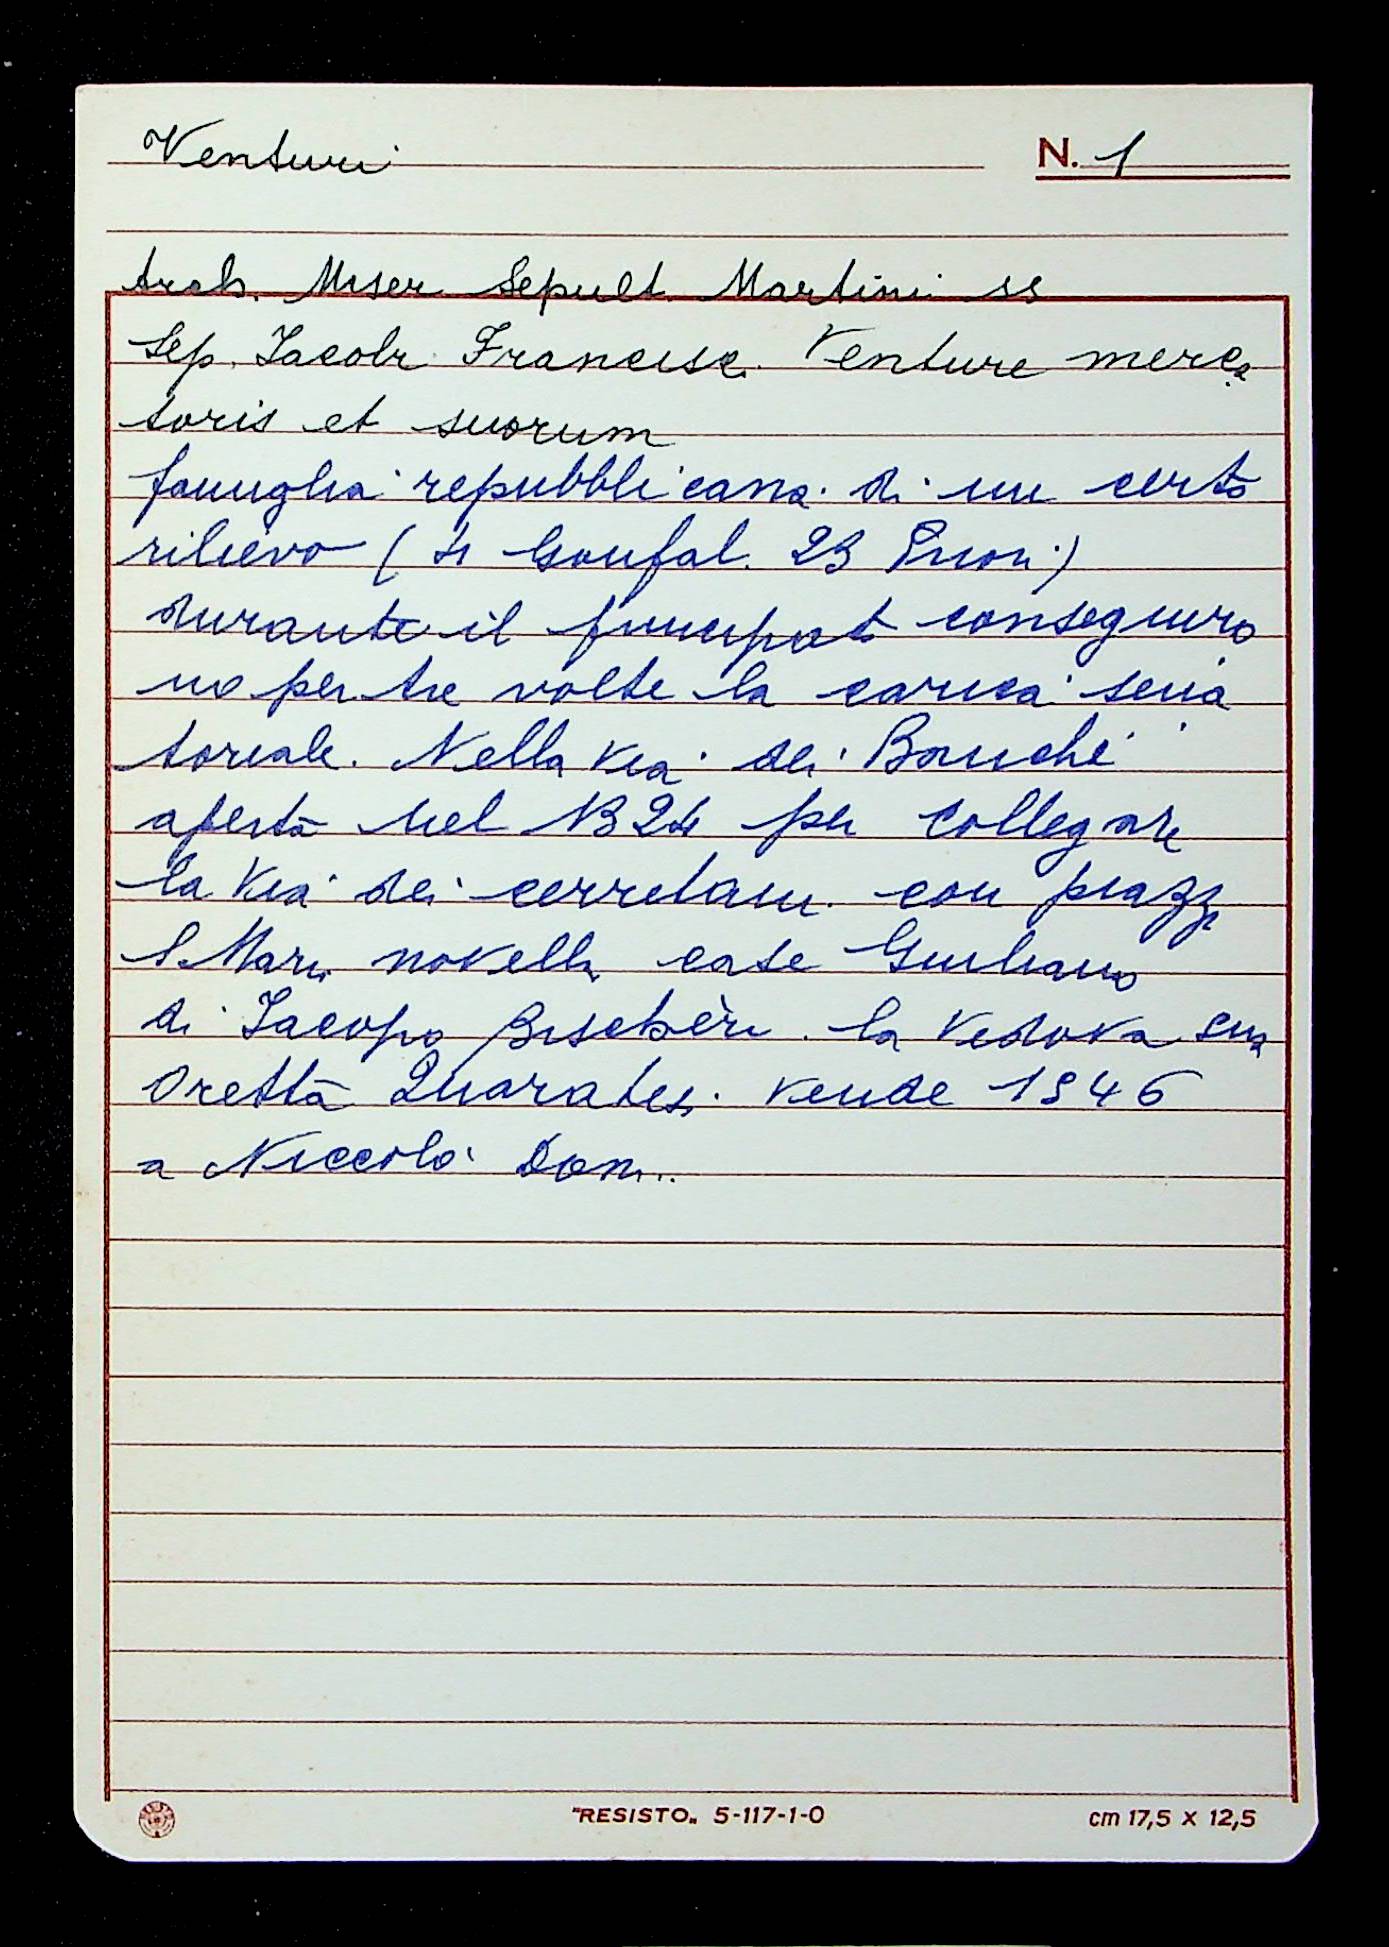 Venturi N. 1
Arch. Miser Sepult. Martini ss
Sep. Iacobi Francisci Venture merca
toris et suorum
famiglia repubblicana di un certo
rilievo (4 Gonfal. 23 Priori)
durante il principato conseguiro
no per tre volte la carica sena
toriale. Nella via dei Banchi
aperta nel 1324 per collegare
la via dei cerretani con piazza
S. Maria novella case Giuliano
di Iacopo la vedova sua
Oretta Quaratesi vende 1546
a Niccolò
"RESISTO„ 5-117-1-0 cm 17,5 x 12,5